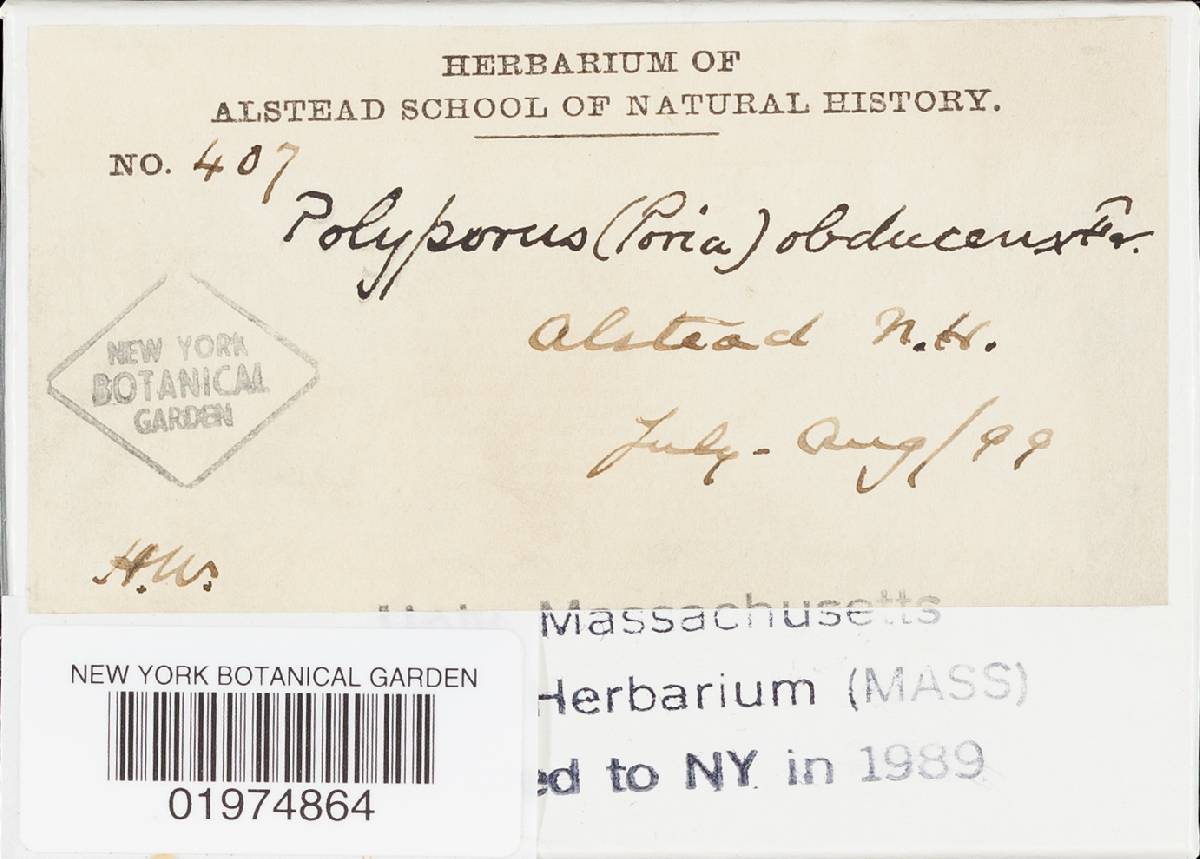 HERBARIUM OF
ALSTEAD SCHOOL OF NATURAL HISTORY.
NO. 407
Polyporus (Poria) obducens Fr.
Alstead N.H.
July - Aug/99
NEW YORK
BOTANICAL
GARDEN
H.W.
Massachusetts
Herbarium (MASS)
ed to NY in 1989
NEW YORK BOTANICAL GARDEN
01974864